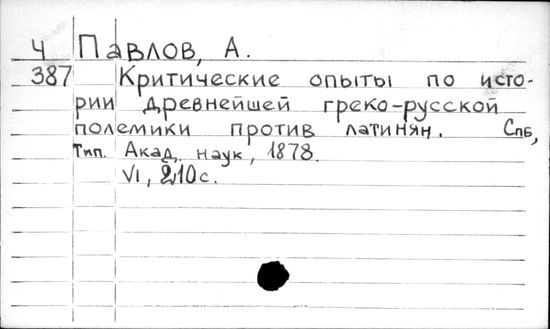 Ч Павлов, А.
387 Критические опыты по исто-
рии древнейшей греко-русской
полемики против латинян. Спб,
Тип. Акад. наук, 1878.
VI, 210 с.